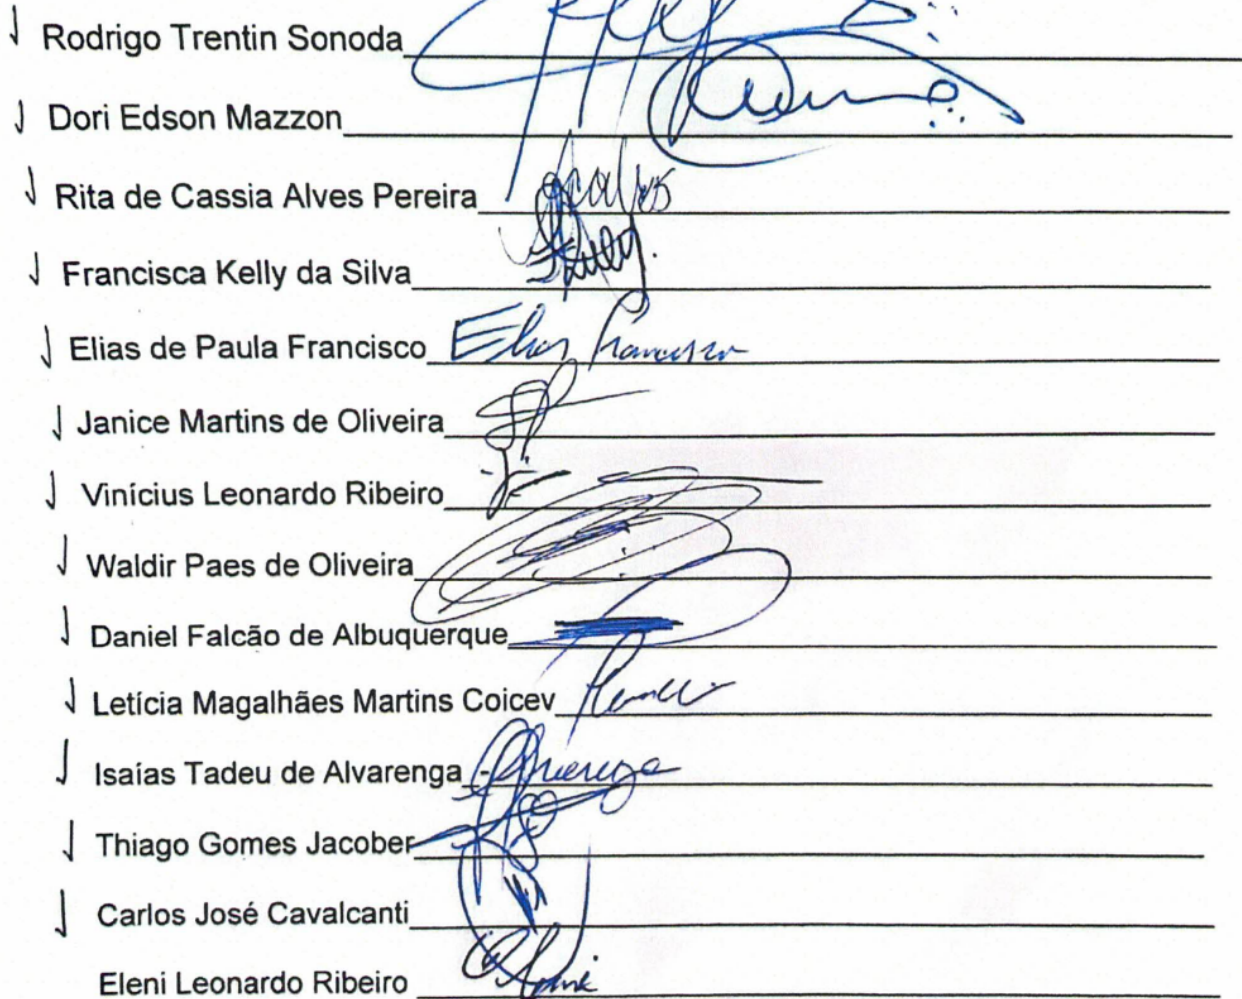 Rodrigo Trentin Sonoda
Dori Edson Mazzon
Rita de Cassia Alves Pereira
Francisca Kelly da Silva
Elias de Paula Francisco Elias Francisco
Janice Martins de Oliveira
Vinícius Leonardo Ribeiro
Waldir Paes de Oliveira
Daniel Falcão de Albuquerque
Letícia Magalhães Martins Coicev
Isaías Tadeu de Alvarenga
Thiago Gomes Jacober
Carlos José Cavalcanti
Eleni Leonardo Ribeiro